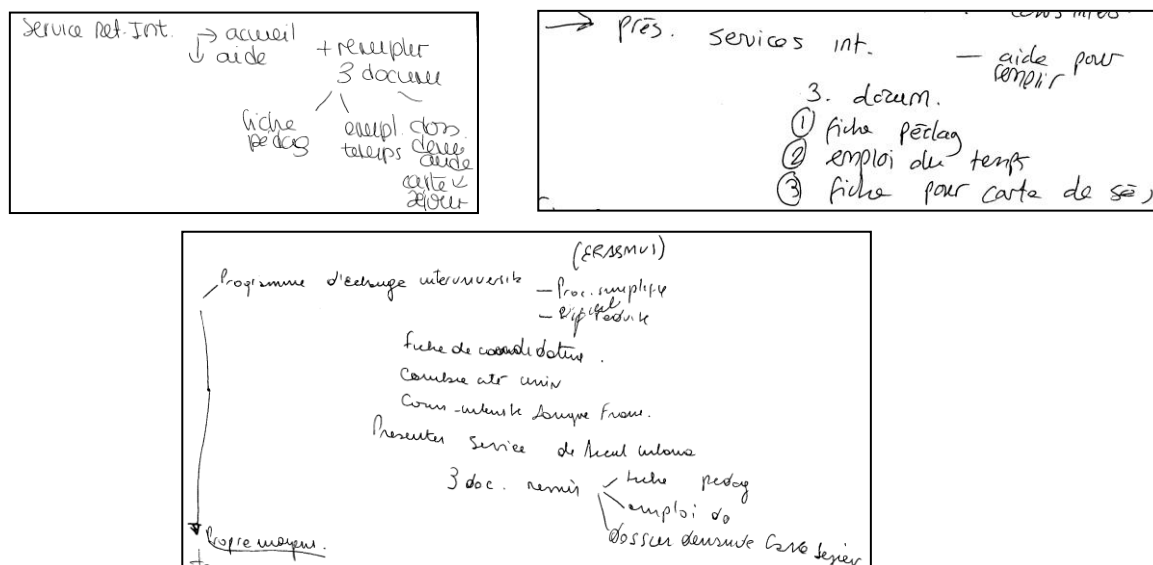 Service Rel. Int. → accueil
↓ aide
+ remplir
3 docume
fiche pédag
emepl. temps
dos. deme ande carte séjour
→ prés. services int.
— aide pour remplir
3. docum.
① fiche pédag
② emploi du temps
③ fiche pour carte de sé
(ERASMUS)
Programme d'échange interuniversit
— Proc. simplifié
— réduite
Fiche de candidature.
unin
Cours intensif Langue Franc.
Presenter Service de
3 doc. remis
fiche pedag
emploi du
dossier demande Carte
Propre moyens.